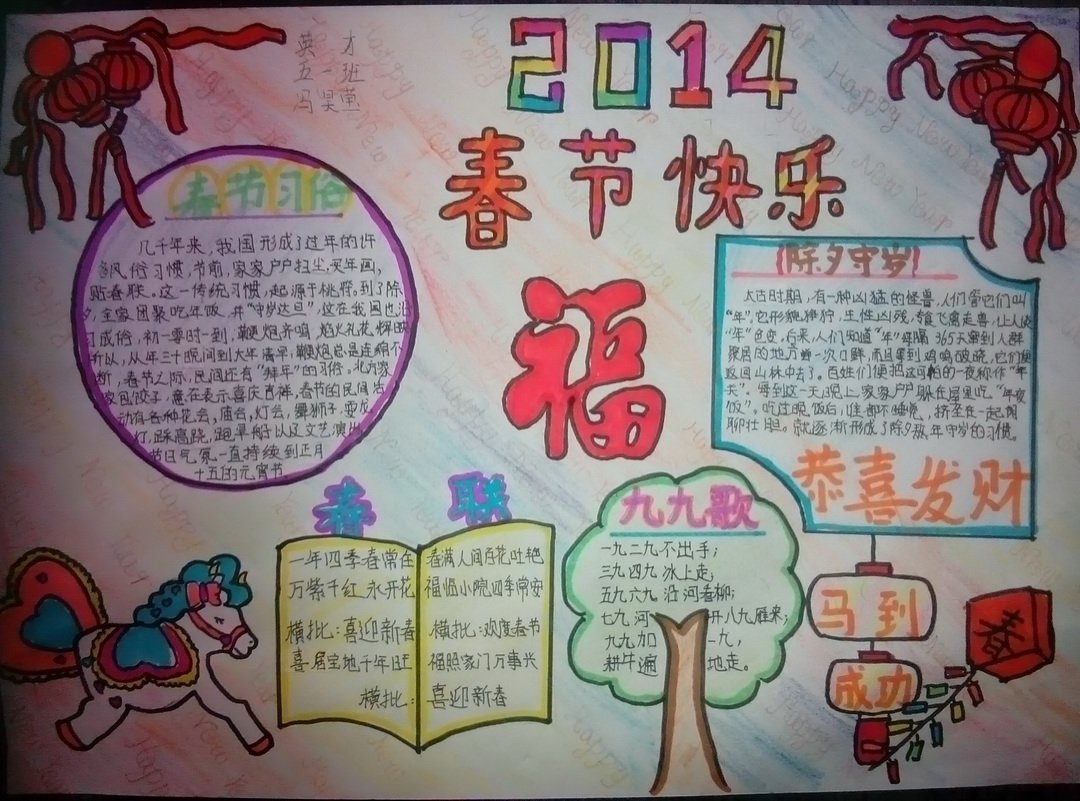 英 才
五一班
2014
春节快乐
福
春节习俗
几千年来,我国形成了过年的许
多风俗习惯,节前,家家户户扫尘,买年画,
贴春联。这一传统习惯,起源于桃符。到了除
夕,全家团聚吃年饭,并“守岁达旦”,这在我国也
习成俗,初一零时一到,鞭炮齐鸣,焰火礼花,辉映
所以,从年三十晚间到大年清早,鞭炮总是连绵不
断,春节之际,民间还有“拜年”的习俗,北方家
家包饺子,意在表示喜庆吉祥,春节的民间活
动有各种花会,庙会,灯会,舞狮子,耍龙
灯,踩高跷,跑旱船以及文艺演出
节日气氛一直持续到正月
十五的元宵节
除夕守岁
太古时期,有一种凶猛的怪兽,人们管它们叫
“年”,它形貌狰狞,生性凶残,专食飞禽走兽,让人谈
“年”色变。后来,人们知道“年”每隔365天窜到人群
聚居的地方尝一次口鲜,而且等到鸡鸣破晓,它们便
返回山林中去了。百姓们便把这可怕的一夜称作“年
关”。每到这一天晚上,家家户户躲在屋里吃“年夜
饭”,吃过晚饭后,谁都不睡觉,挤坐在一起闲
聊壮胆。就逐渐形成了除夕熬年守岁的习惯。
恭喜发财
春 联
一年四季春常在
万紫千红永开花
横批:喜迎新春
喜居宝地千年旺
横批:
春满人间百花吐艳
福临小院四季常安
横批:欢度春节
福照家门万事兴
喜迎新春
九九歌
一九二九不出手;
三九四九冰上走;
五九六九沿河看柳;
七九河 开八九雁来;
九九加 一九,
耕牛遍 地走。
马到
成功
春